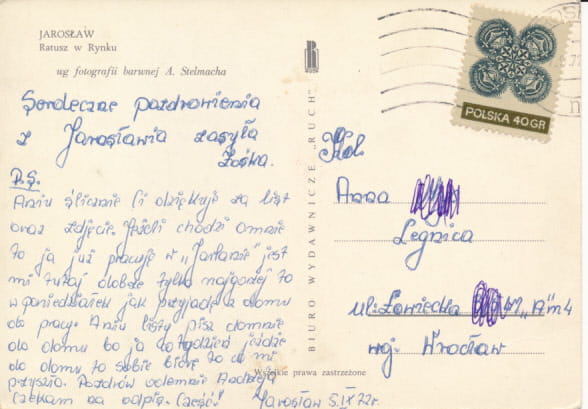 JAROSŁAW
Ratusz w Rynku
wg fotografii barwnej A. Stelmacha
Serdeczne pozdrowienia
z Jarosławia zasyła
Zośka.
P.S.
Aniu ślicznie Ci dziękuję za list
oraz zdjęcie. Jeżeli chodzi omnie
to ja już pracuję w „Jarlanie" jest
mi tutaj dobrze tylko najgorzej to
w poniedziałek jak przyjadę z domu
do pracy. Aniu listy pisz domnie
do domu bo ja co tydzień jeżdżę
do domu to sobie biorę to co mi
przyszło. Pozdrów odemnie Andrzeja
Czekam na odpis. Cześć!
Jarosław 5.IX 72r.
BIURO WYDAWNICZE „RUCH"
Wszelkie prawa zastrzeżone
POLSKA 40 GR
Kol.
Anna
Legnica
ul: Łowiecka "A" m 4
woj. Wrocław